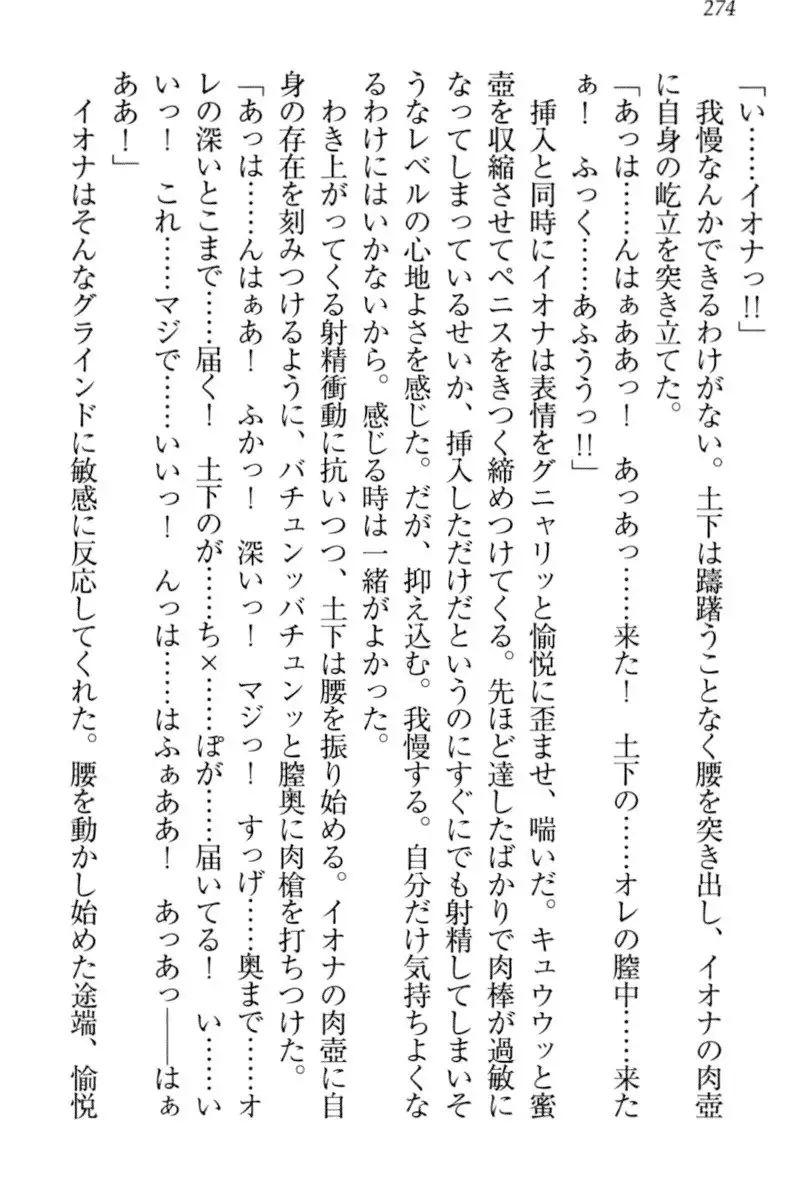 274
「い……イオナっ!!」
　我慢なんかできるわけがない。土下は躊躇うことなく腰を突き出し、イオナの肉壺
に自身の屹立を突き立てた。
「あっは……んはぁああっ！　あっあっ……来た！　土下の……オレの膣中……来た
ぁ！　ふっく……あふううっ!!」
　挿入と同時にイオナは表情をグニャリッと愉悦に歪ませ、喘いだ。キュウウッと蜜
壺を収縮させてペニスをきつく締めつけてくる。先ほど達したばかりで肉棒が過敏に
なってしまっているせいか、挿入しただけだというのにすぐにでも射精してしまいそ
うなレベルの心地よさを感じた。だが、抑え込む。我慢する。自分だけ気持ちよくな
るわけにはいかないから。感じる時は一緒がよかった。
　わき上がってくる射精衝動に抗いつつ、土下は腰を振り始める。イオナの肉壺に自
身の存在を刻みつけるように、バチュンッバチュンッと膣奥に肉槍を打ちつけた。
「あっは……んはぁあ！　ふかっ！　深いっ！　マジっ！　すっげ……奥まで……オ
レの深いとこまで……届く！　土下のが……ち×……ぽが……届いてる！　い……い
いっ！　これ……マジで……いいっ！　んっは……はふぁああ！　あっあっ――はぁ
ああ！」
　イオナはそんなグラインドに敏感に反応してくれた。腰を動かし始めた途端、愉悦